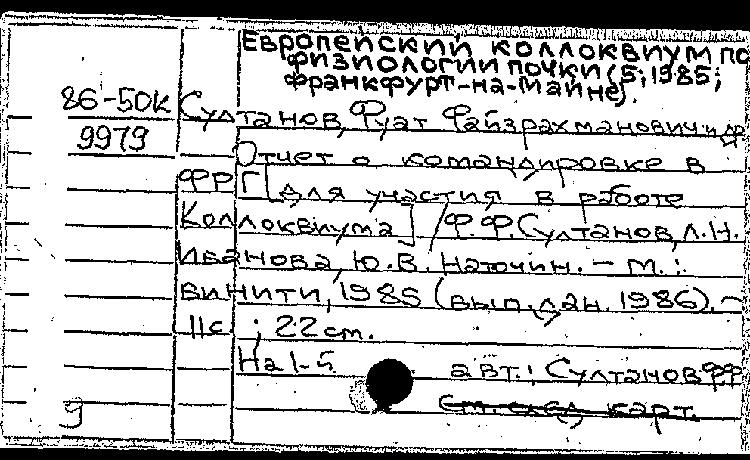 Европейский коллоквиум по
физиологии почки (5; 1985;
Франкфурт-на-Майне).
86-50К
9979
Султанов, Фуат Файзрахманович и др
Отчет о командировке в
ФРГ [для участия в работе
Коллоквиума] / Ф.Ф. Султанов, Л.Н.
Иванова, Ю.В. Наточин. - М.:
ВИНИТИ, 1985 (вып. дан. 1986). -
11с ; 22 см.
На 1-5
авт.: Султанов ФФ
См. след карт.
9